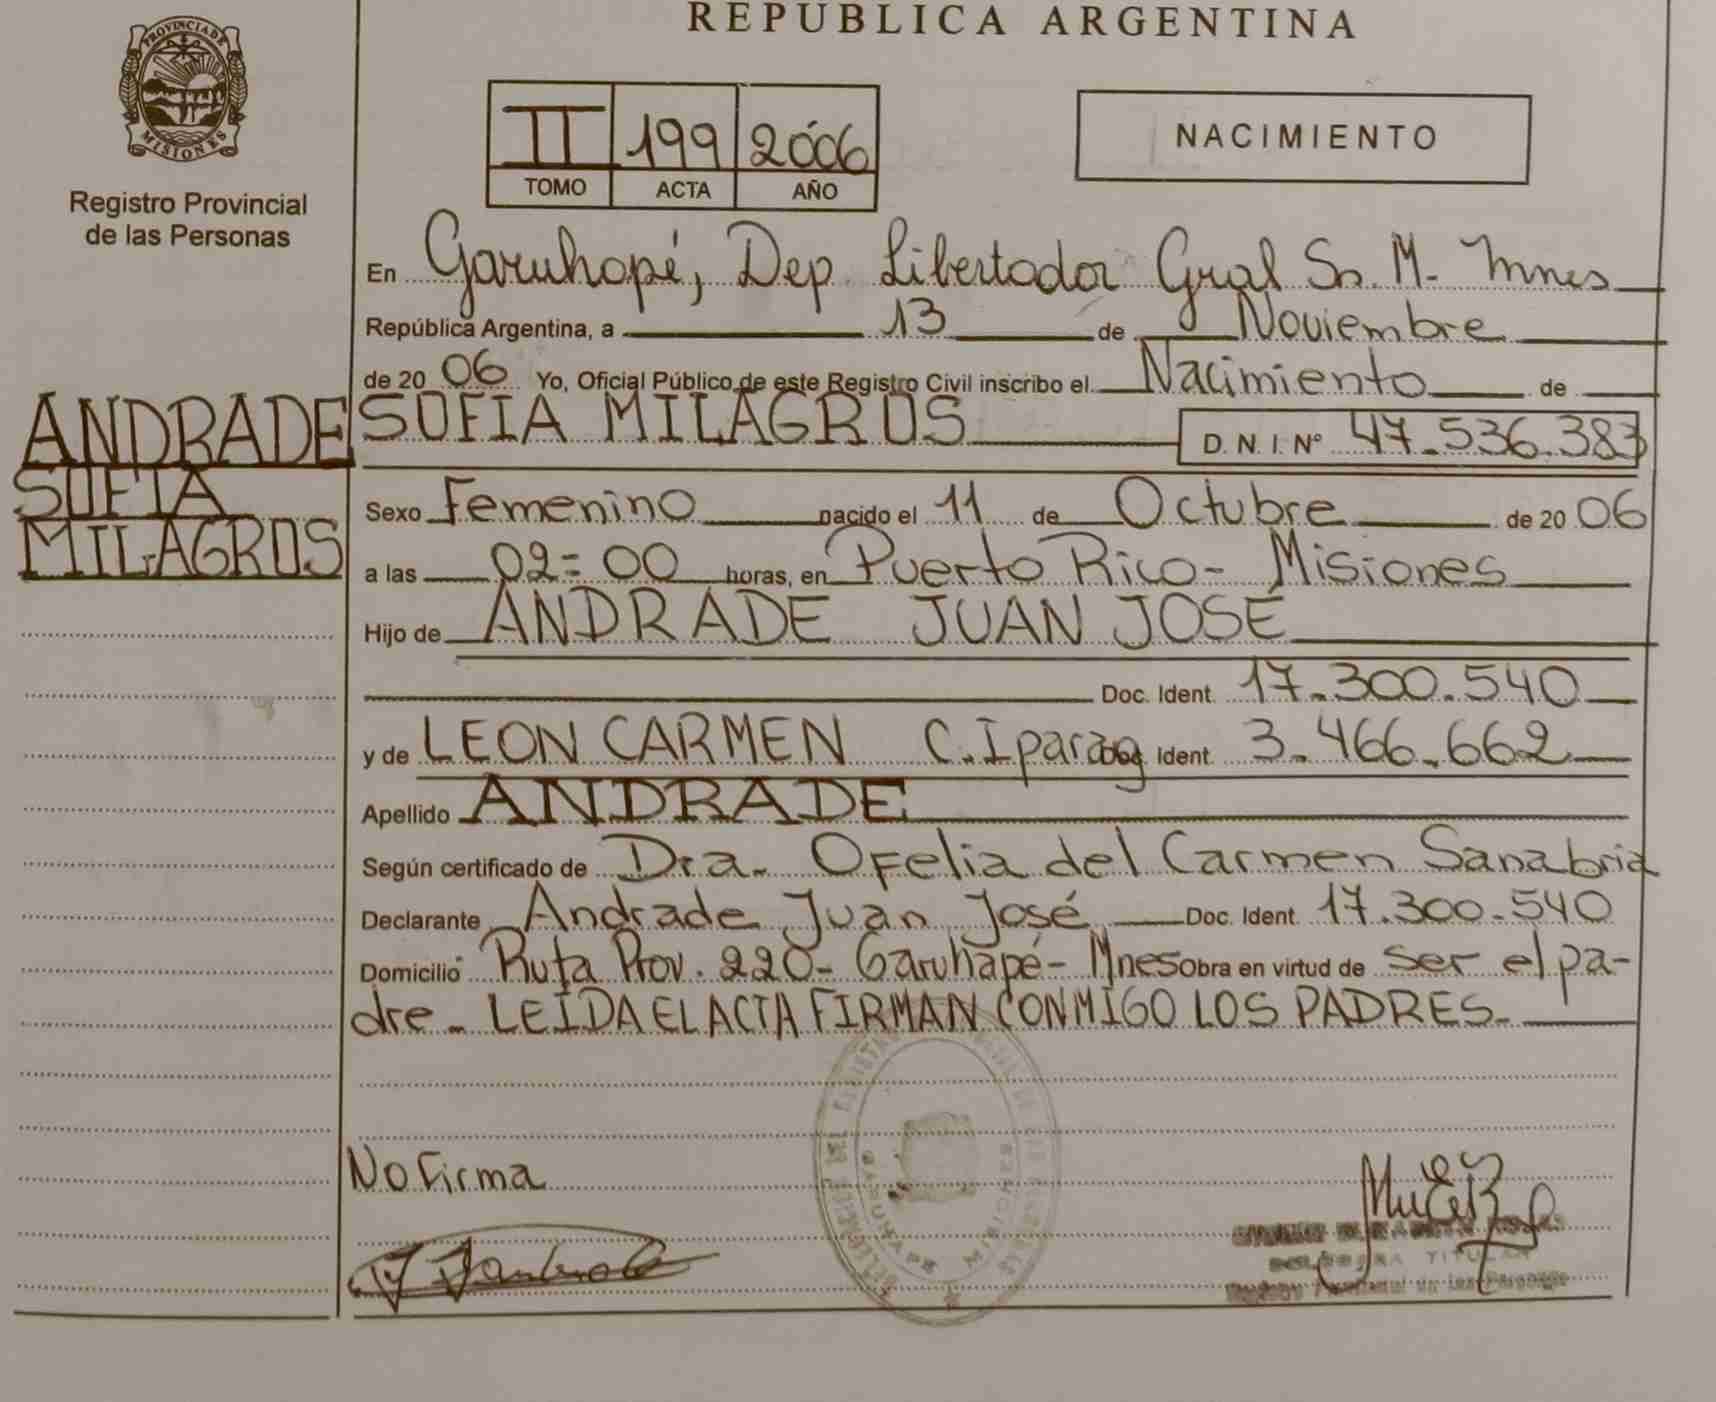 REPUBLICA ARGENTINA
PROVINCIA DE
MISIONES
Registro Provincial
de las Personas
II 199 2006
TOMO ACTA AÑO
NACIMIENTO
En Garuhapé, Dep. Libertador Gral Sn. M- Mnes
República Argentina, a 13 de Noviembre
de 20 06 Yo, Oficial Público de este Registro Civil inscribo el Nacimiento de
ANDRADE
SOFIA
MILAGROS
SOFIA MILAGROS D. N. I. Nº 47.536.383
Sexo Femenino nacido el 11 de Octubre de 20 06
a las 02=00 horas, en Puerto Rico- Misiones
Hijo de ANDRADE JUAN JOSÉ
Doc. Ident. 17.300.540
y de LEON CARMEN C.I parag Doc. Ident. 3.466.662
Apellido ANDRADE
Según certificado de Dra. Ofelia del Carmen Sanabria
Declarante Andrade Juan José Doc. Ident. 17.300.540
Domicilio Ruta Prov. 220- Garuhapé- Mnes obra en virtud de ser el pa-
dre - LEÍDA EL ACTA FIRMAN CONMIGO LOS PADRES-
No Firma
GARUHAPE MISIONES
TITULAR
de las Personas